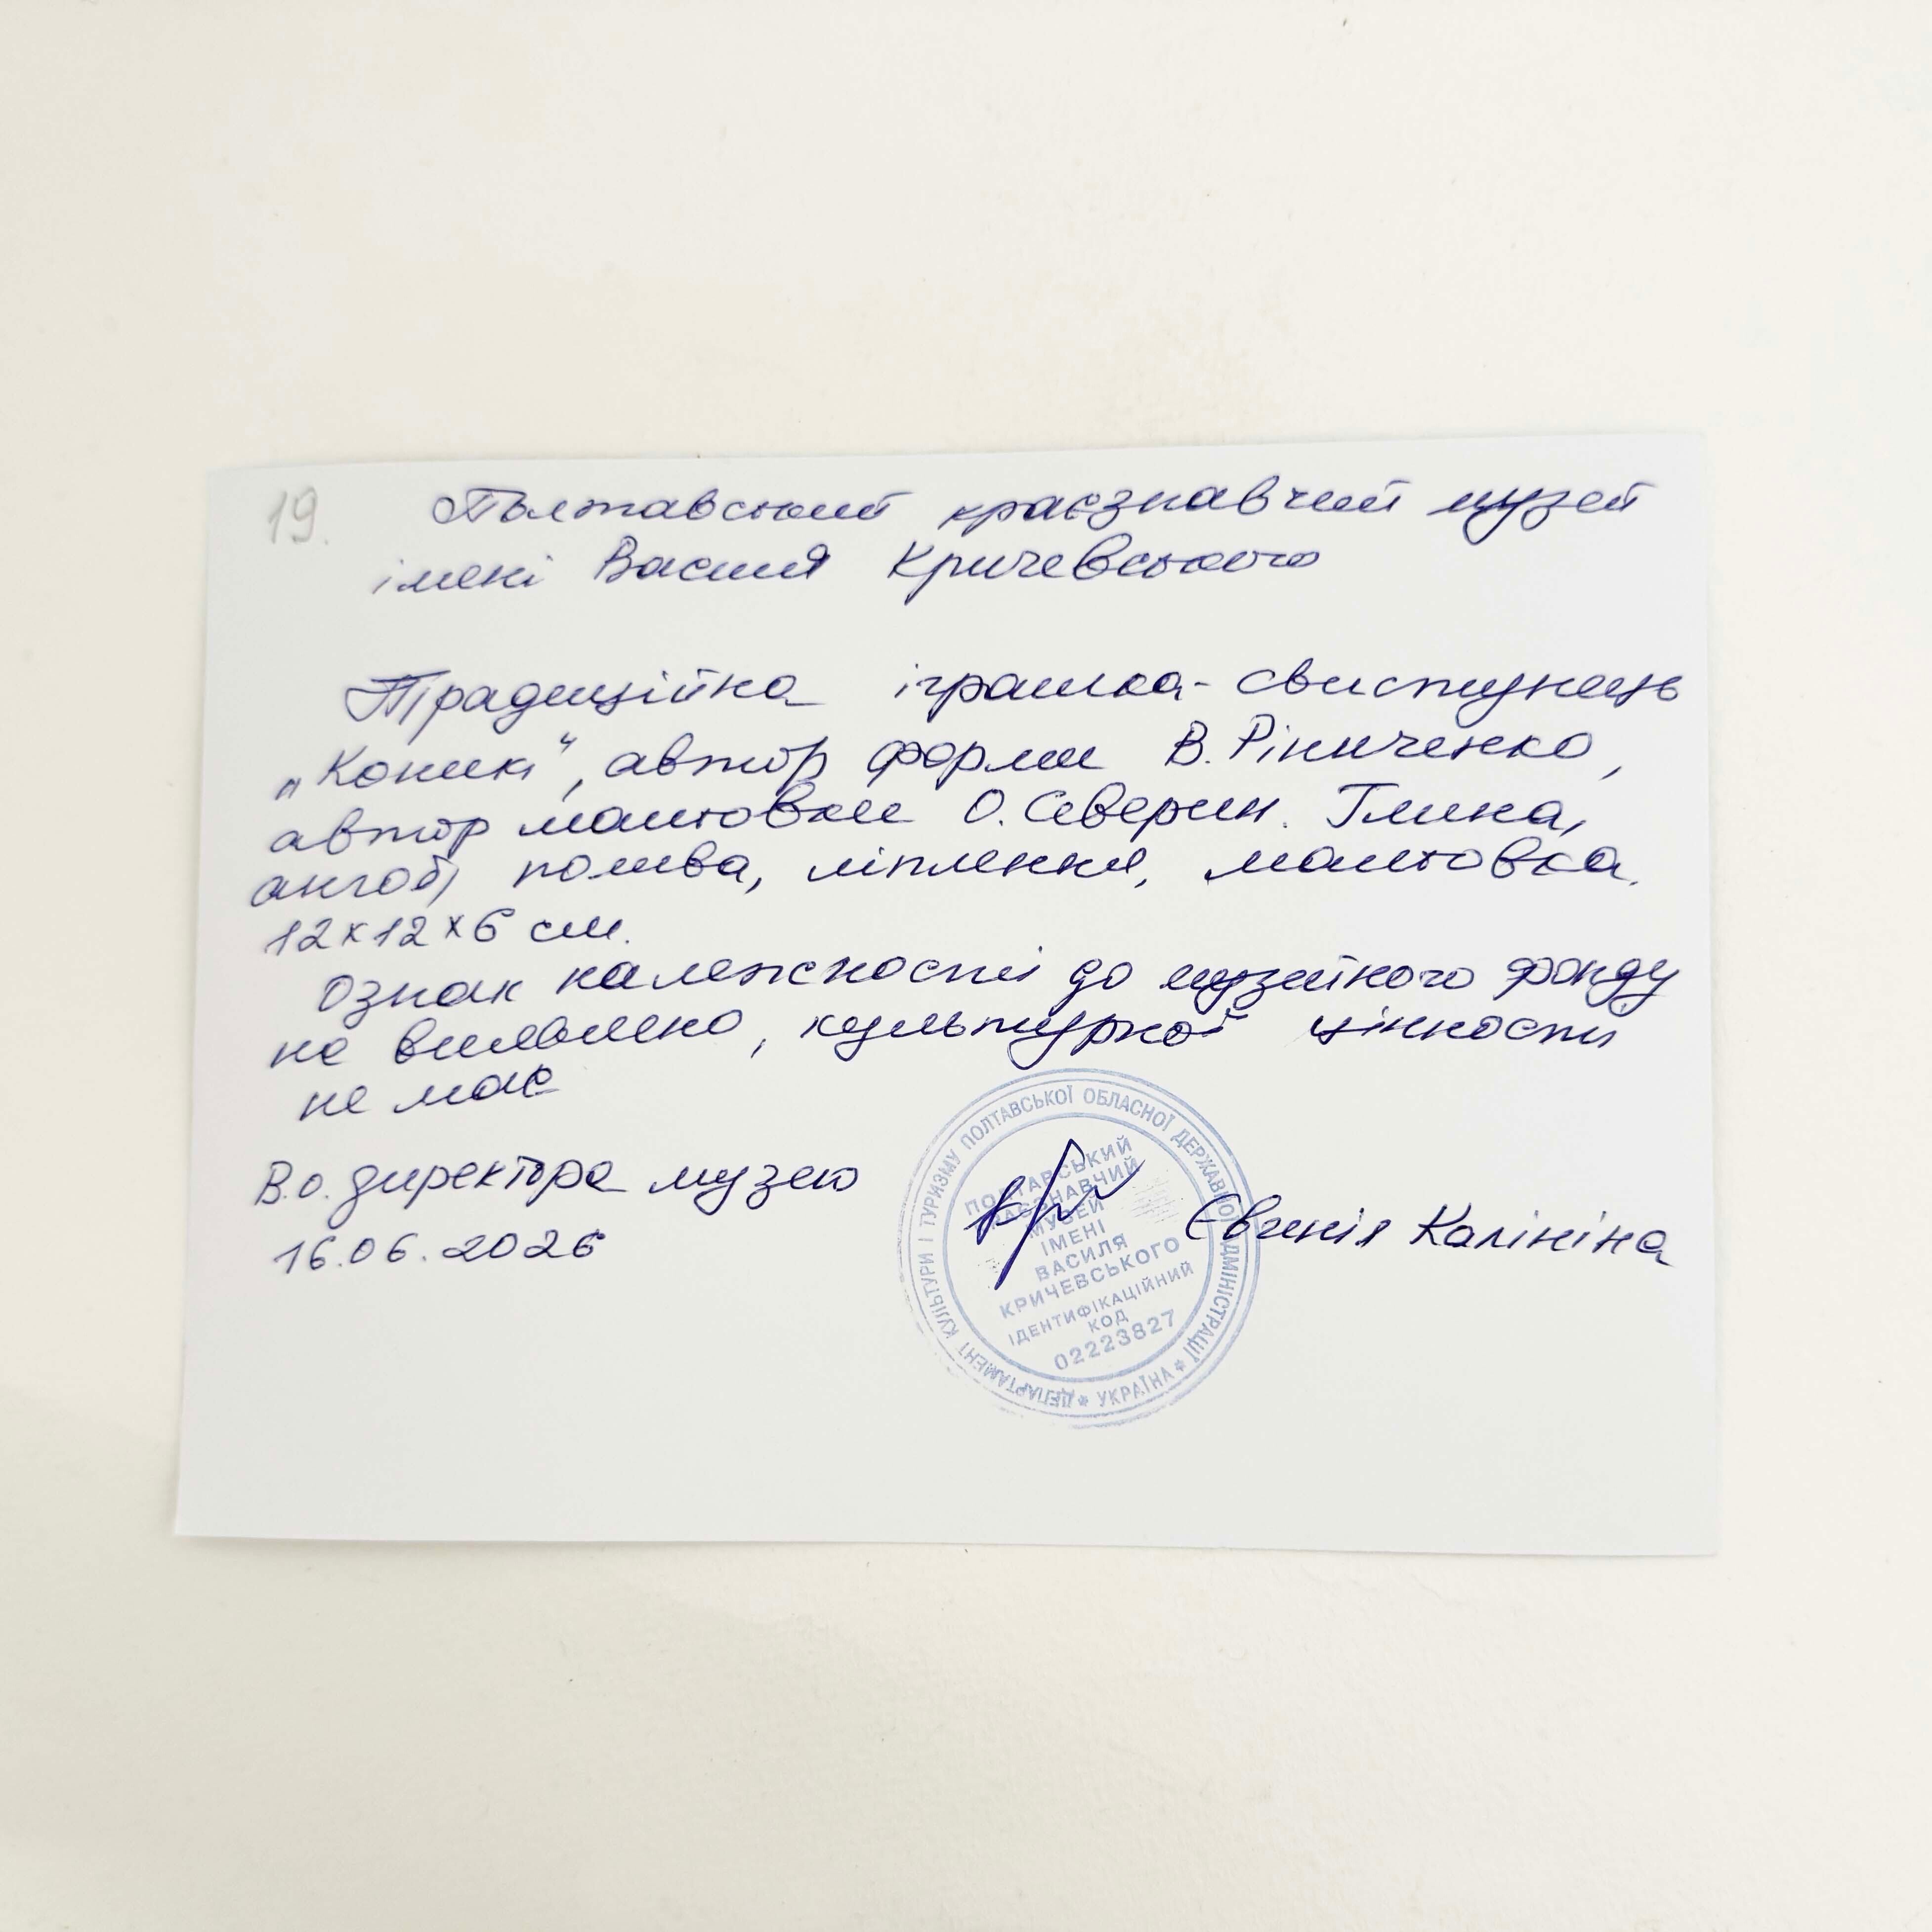 19.
Полтавський краєзнавчий музей
імені Василя Кричевського
Традиційна іграшка-свистунець
„Коник“, автор форми В. Рініченко,
автор мальовки О. Северин. Глина,
ангоб, полива, ліплення, мальовка.
12х12х6 см.
Ознак належності до музейного фонду
не виявлено, культурної цінності
не має
В.о. директора музею
16.06.2026
Євгенія Калініна
ДЕПАРТАМЕНТ КУЛЬТУРИ І ТУРИЗМУ ПОЛТАВСЬКОЇ ОБЛАСНОЇ ДЕРЖАВНОЇ АДМІНІСТРАЦІЇ * УКРАЇНА *
ПОЛТАВСЬКИЙ
КРАЄЗНАВЧИЙ
МУЗЕЙ
ІМЕНІ
ВАСИЛЯ
КРИЧЕВСЬКОГО
ІДЕНТИФІКАЦІЙНИЙ
КОД
02223827